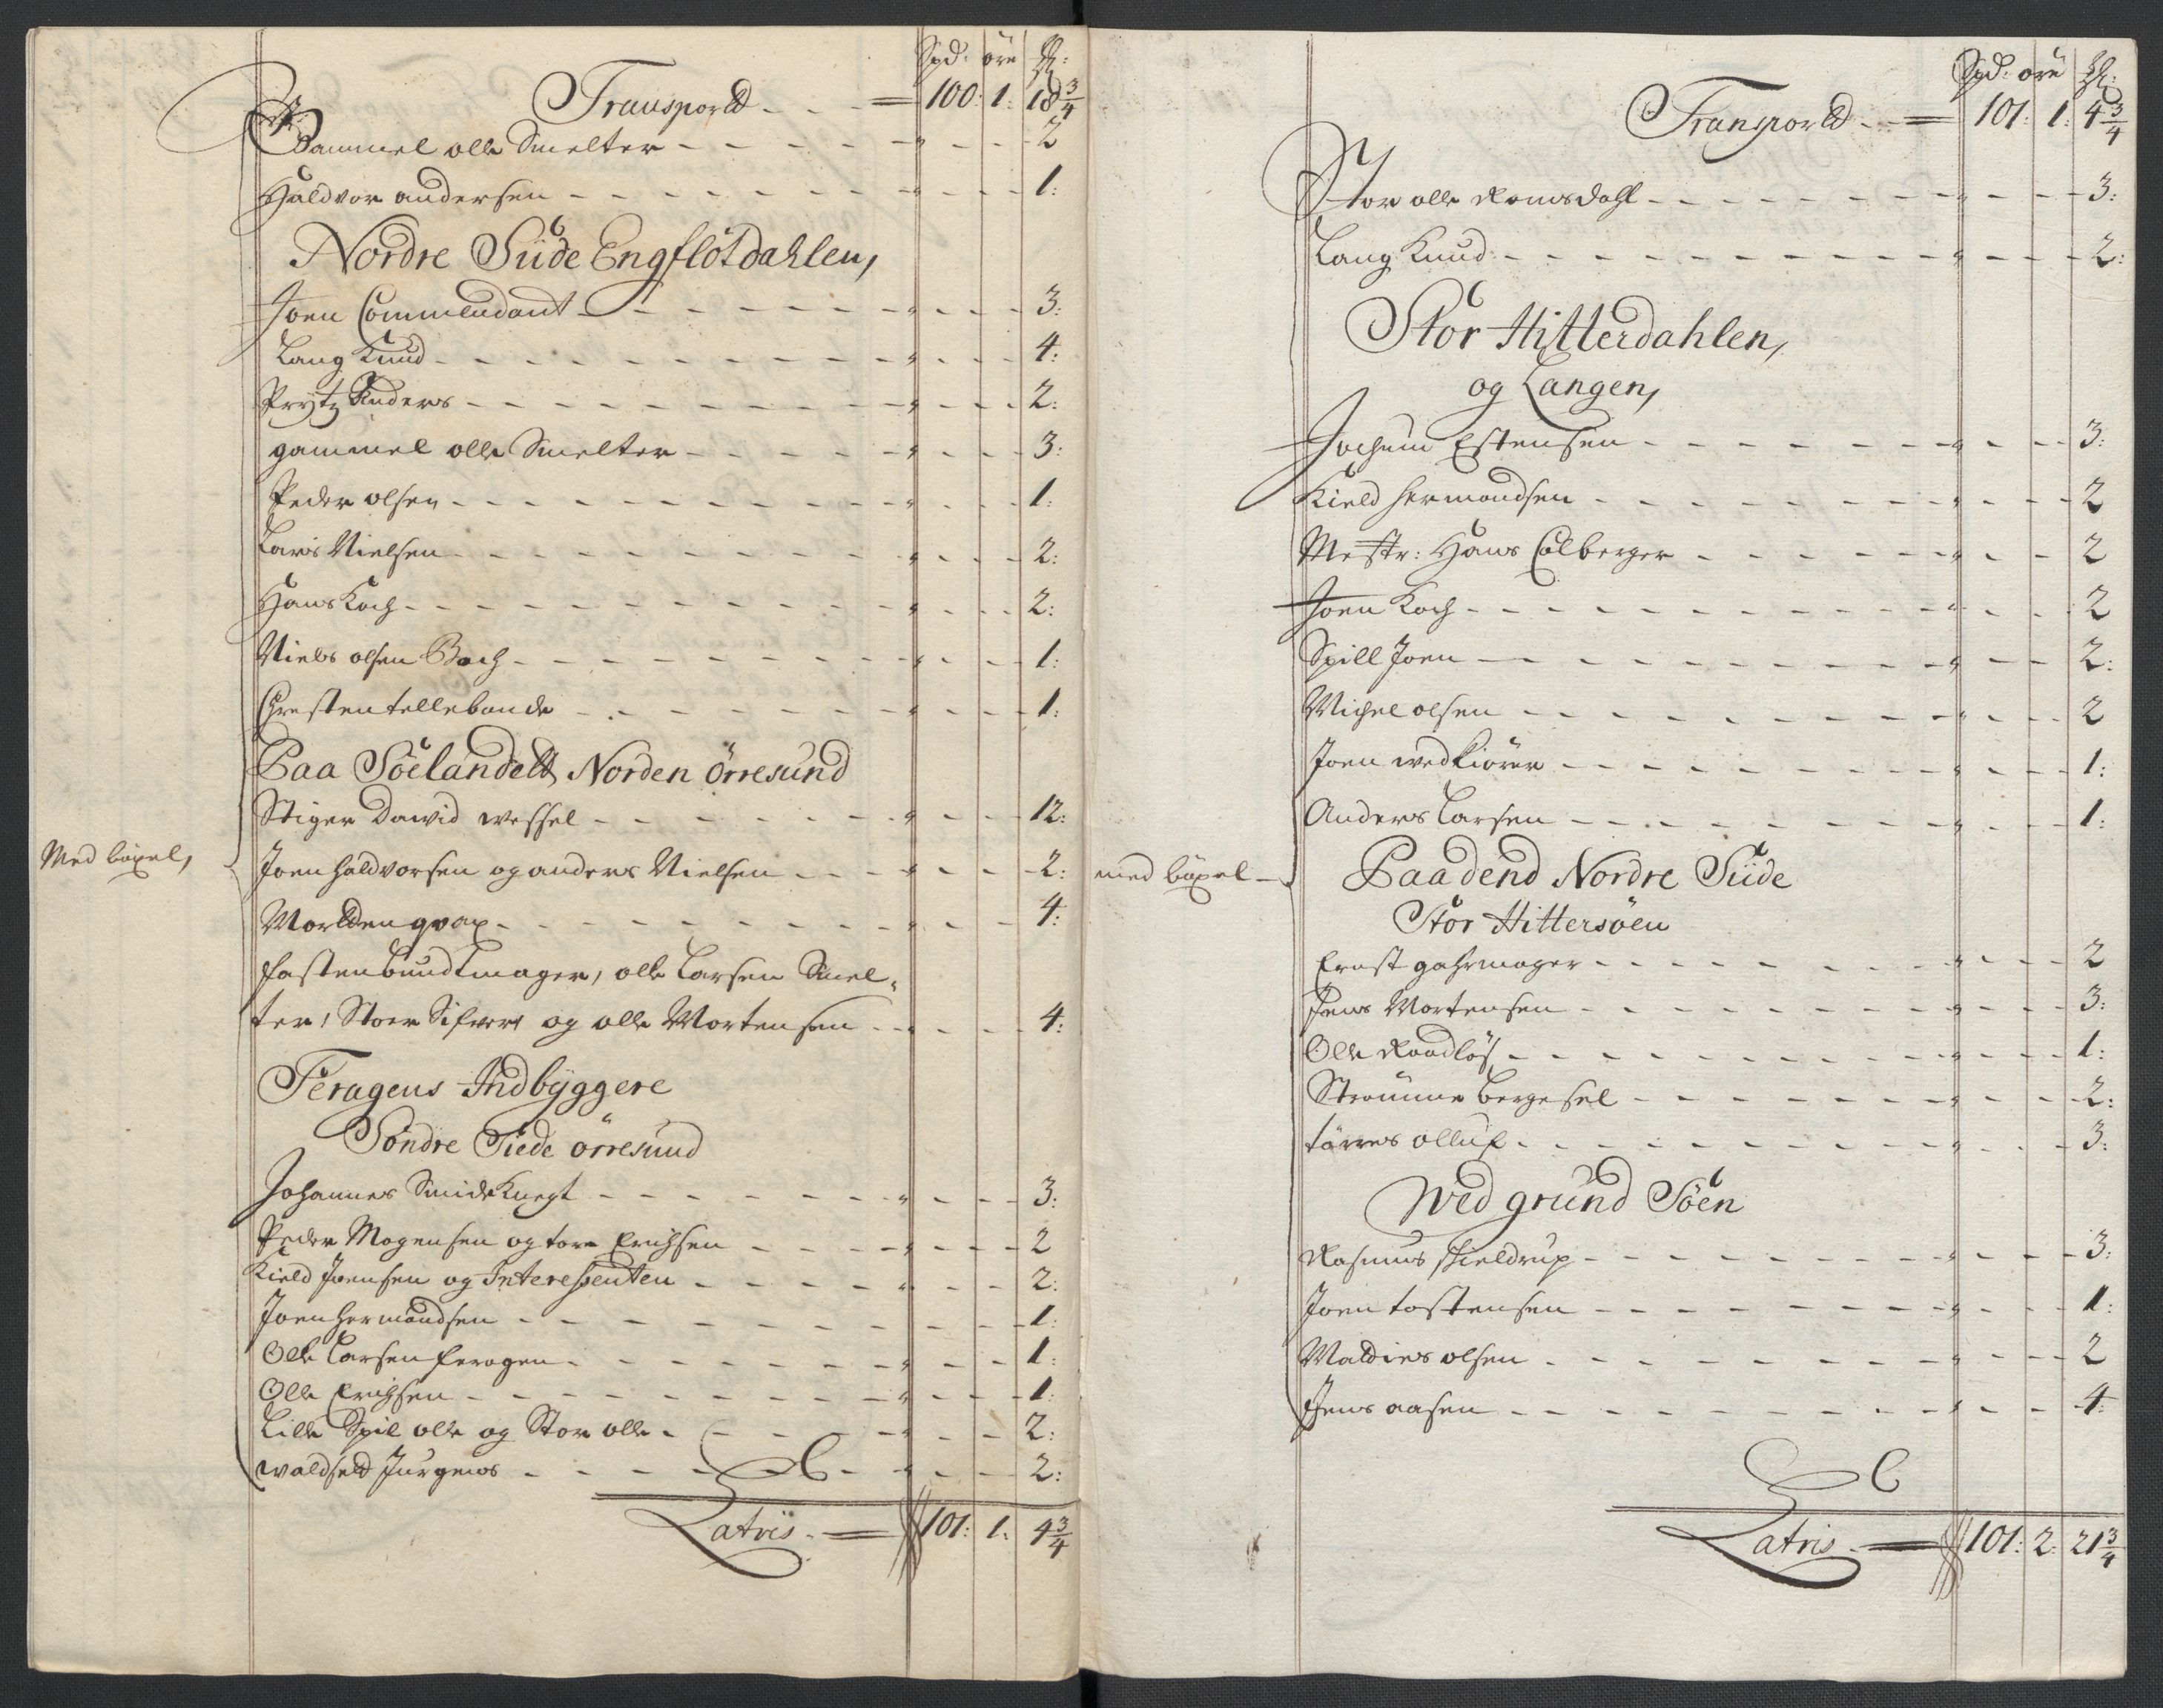 Spd: öre ß:
Transpordt - - - = 100: 1: 18 3/4
Gammel olle Smelter - - - - - 2
Haldvor andersen - - - - - 1:
Nordre Siide Engflötdahlen,
Joen Commendant - - - - - 3:
Lang Knud - - - - - 4:
Prytz Anders - - - - - 2:
gammel olle Smelter - - - - - 3:
Peder olsen - - - - - 1:
Lars Nielsen - - - - - 2:
Hans Koch - - - - - 2:
Niels olsen Bach - - - - - 1:
Chresten tellebonde - - - - - 1:
Paa Söelandett Norden örresund
Stiger David Wessel - - - - - 12:
Med böxel,
Joen Haldvorsen og anders Nielsen - - - 2:
Morten qvax - - - - - 4:
fasten bundtmager, olle Larsen Smel-
ter, Stoer Sifvert og olle Mortensen - - - 4:
Feragens Indbyggere
Söndre Siede örresund
Johannes Smideknegt - - - - - 3:
Peder Mogensen og tore Erichsen - - - - 2
Kield Joensen og Interessenten - - - - 2:
Joen Hermandsen - - - - - 1:
Olle Larsen feragen - - - - - 1:
Olle Erichsen - - - - - 1:
Lille Spil olle og Stor olle - - - - 2:
Waldfeld Jurgens - - - - - 2:
Latris - = 101: 1: 4 3/4
Spd: öre ß:
Transpordt - - = 101: 1: 4 3/4
Stor olle Romsdahl - - - - - 3:
Lang Knud - - - - - 2:
Stor Hitterdahlen,
og Langen,
Jochum Estensen - - - - - 3:
Kield Hermandsen - - - - - 2
Mestr: Hans Colberger - - - - - 2
Joen Koch - - - - - 2
Spill Joen - - - - - 2:
Michel olsen - - - - - 2
Joen wedkiörer - - - - - 1:
Anders Larsen - - - - - 1:
med böxel -
Paa dend Nordre Siide
Stor Hittersöen
Ernst gahrmager - - - - - 2
Jens Mortensen - - - - - 3:
Olle Raadlös - - - - - 1:
Strömme bergesel - - - - - 2:
törres olluf - - - - - 3:
Wed grund Söen
Rasmus skieldrup - - - - - 3:
Joen tostensen - - - - - 1:
Matties olsen - - - - - 2
Jens aasen - - - - - 4:
Latris - = 101: 2: 21 3/4